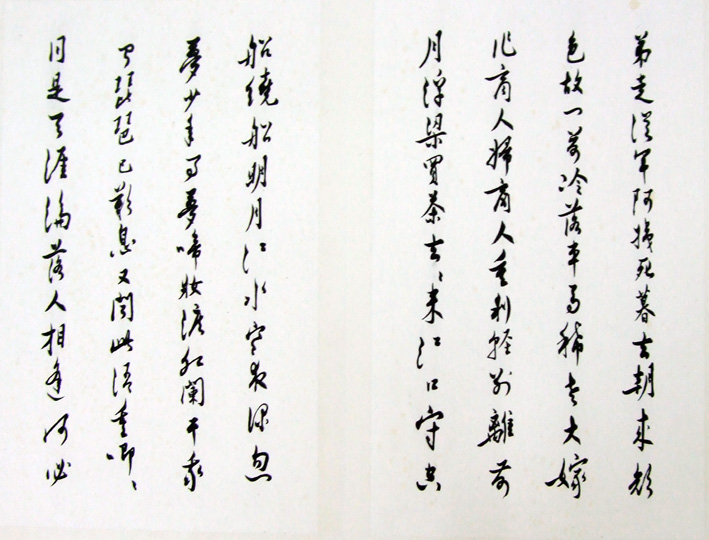 弟走從軍阿姨死暮去朝來顏
色故一前冷落車馬稀老大嫁
作商人婦商人重利輕別離前
月浮梁買茶去去來江口守空
船繞船明月江水寒夜深忽
夢少年事夢啼妝淚紅闌干我
聞琵琶已歎息又聞此語重唧唧
同是天涯淪落人相逢何必